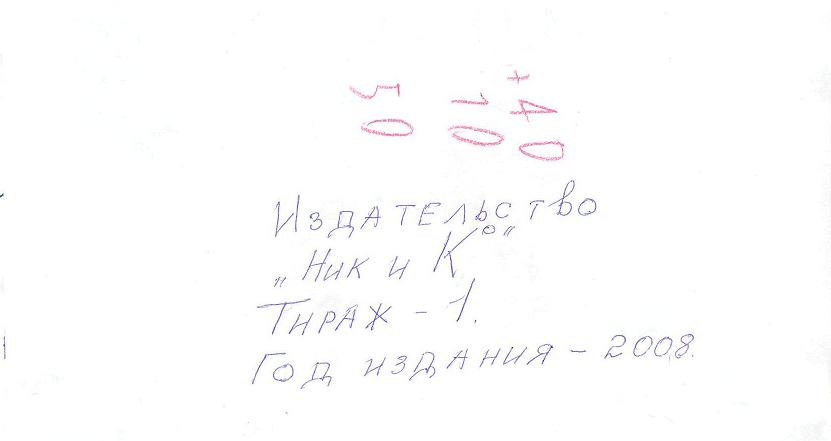 +40
10
50
Издательство
„Ник и К°“
Тираж – 1.
Год издания – 2008.